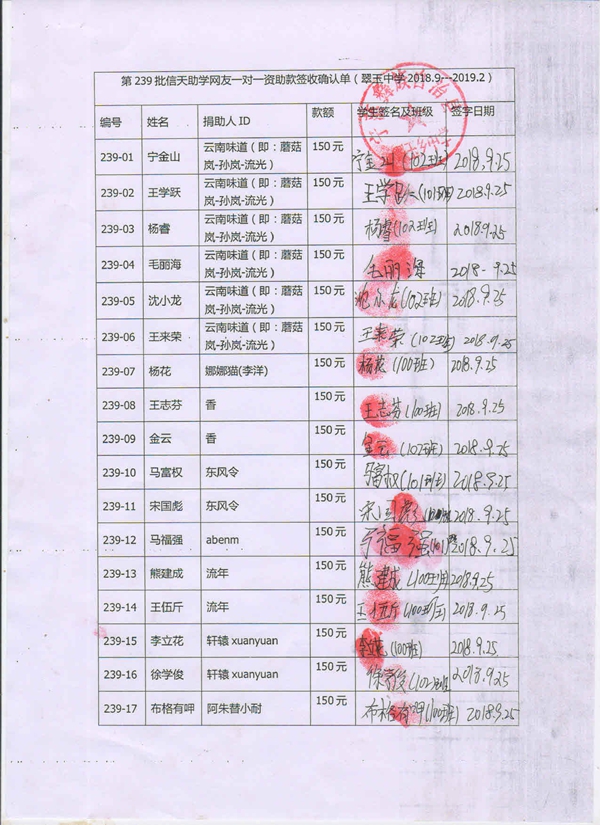 第 239 批信天助学网友一对一资助款签收确认单（翠玉中学 2018.9---2019.2）
编号 姓名 捐助人 ID 款额 学生签名及班级 签字日期
239-01 宁金山 云南味道（即：蘑菇 150 元 宁金山(102班) 2018.9.25
岚-孙岚-流光）
239-02 王学跃 云南味道（即：蘑菇 150 元 王学跃(101班) 2018.9.25
岚-孙岚-流光）
239-03 杨睿 云南味道（即：蘑菇 150 元 杨睿(102班) 2018.9.25
岚-孙岚-流光）
239-04 毛丽海 云南味道（即：蘑菇 150 元 毛丽海 2018-9.25
岚-孙岚-流光）
239-05 沈小龙 云南味道（即：蘑菇 150 元 沈小龙(102班) 2018.9.25
岚-孙岚-流光）
239-06 王来荣 云南味道（即：蘑菇 150 元 王来荣(102班) 2018.9.25
岚-孙岚-流光）
239-07 杨花 娜娜猫(李洋) 150 元 杨花(100班) 2018.9.25
239-08 王志芬 香 150 元 王志芬(100班) 2018.9.25
239-09 金云 香 150 元 金云(102班) 2018.9.25
239-10 马富权 东风令 150 元 马富权(101班) 2018.9.25
239-11 宋国彪 东风令 150 元 宋国彪 2018.9.25
239-12 马福强 abenm 150 元 马福强(101 2018.9.25
239-13 熊建成 流年 150 元 熊建成(100班) 2018.9.25
239-14 王伍斤 流年 150 元 王伍斤(100班) 2018.9.25
239-15 李立花 轩辕 xuanyuan 150 元 李立花(100班) 2018.9.25
239-16 徐学俊 轩辕 xuanyuan 150 元 徐学俊(102班 2018.9.25
239-17 布格有呷 阿朱替小耐 150 元 布格有呷(100班) 2018.9.25